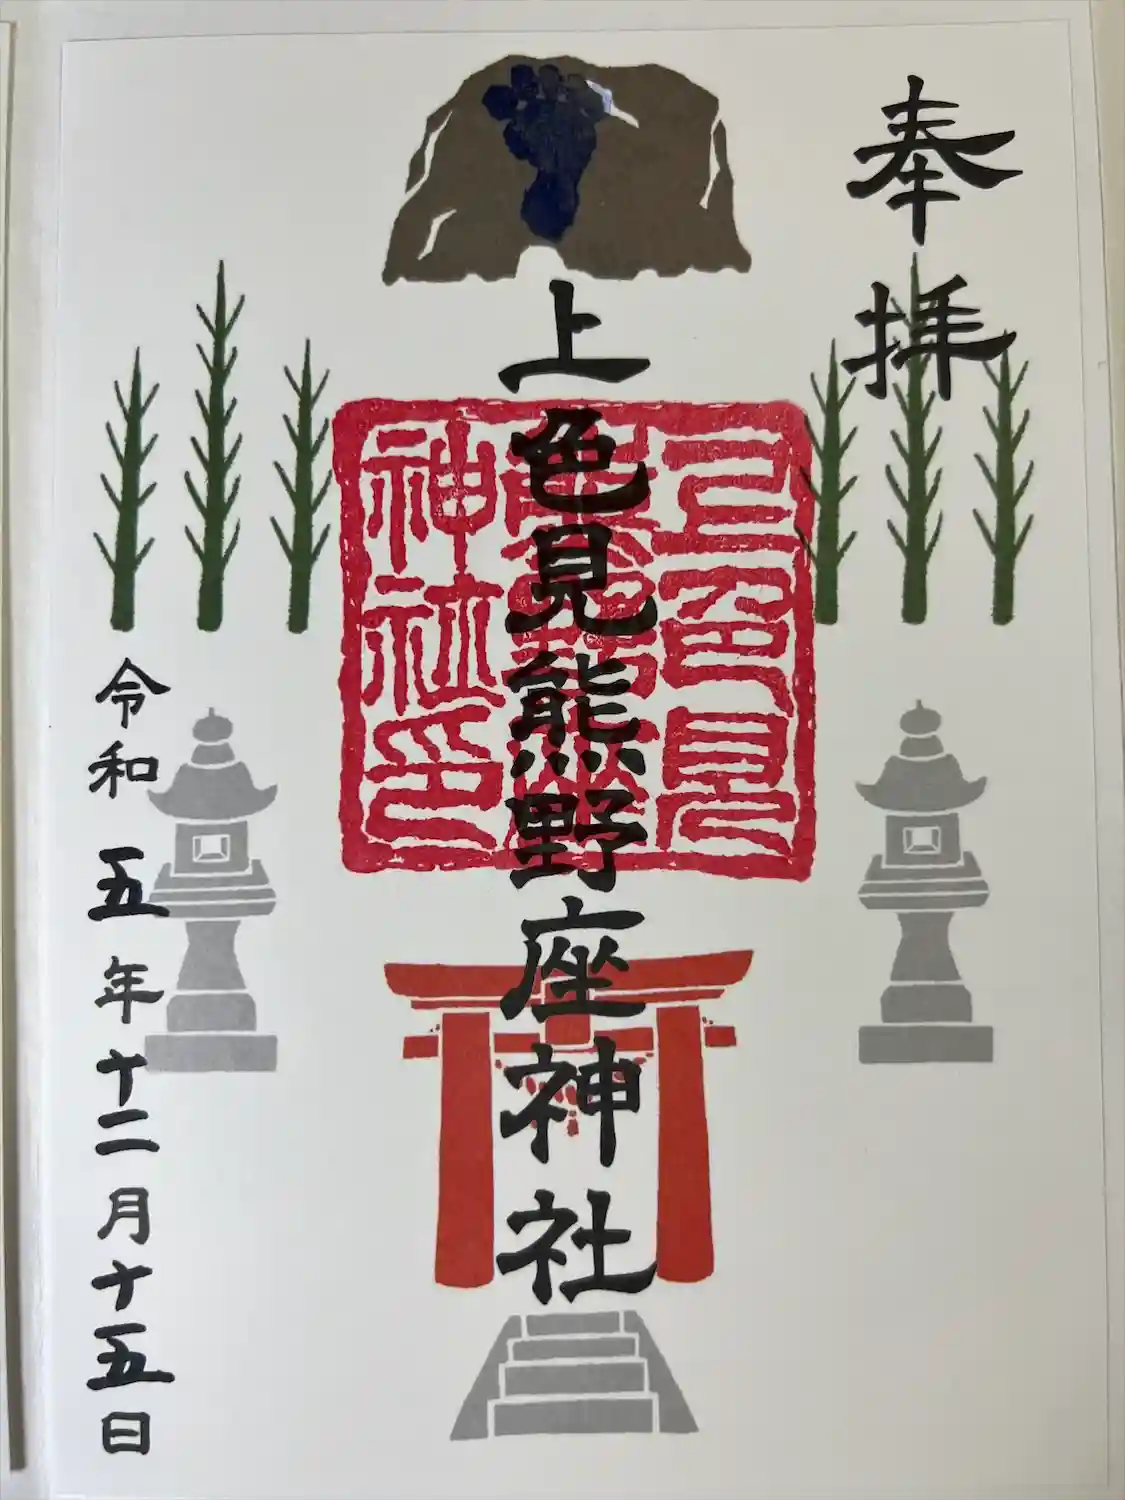 奉拝
上色見熊野座神社
上色見
熊野座
神社印
令和五年十二月十五日